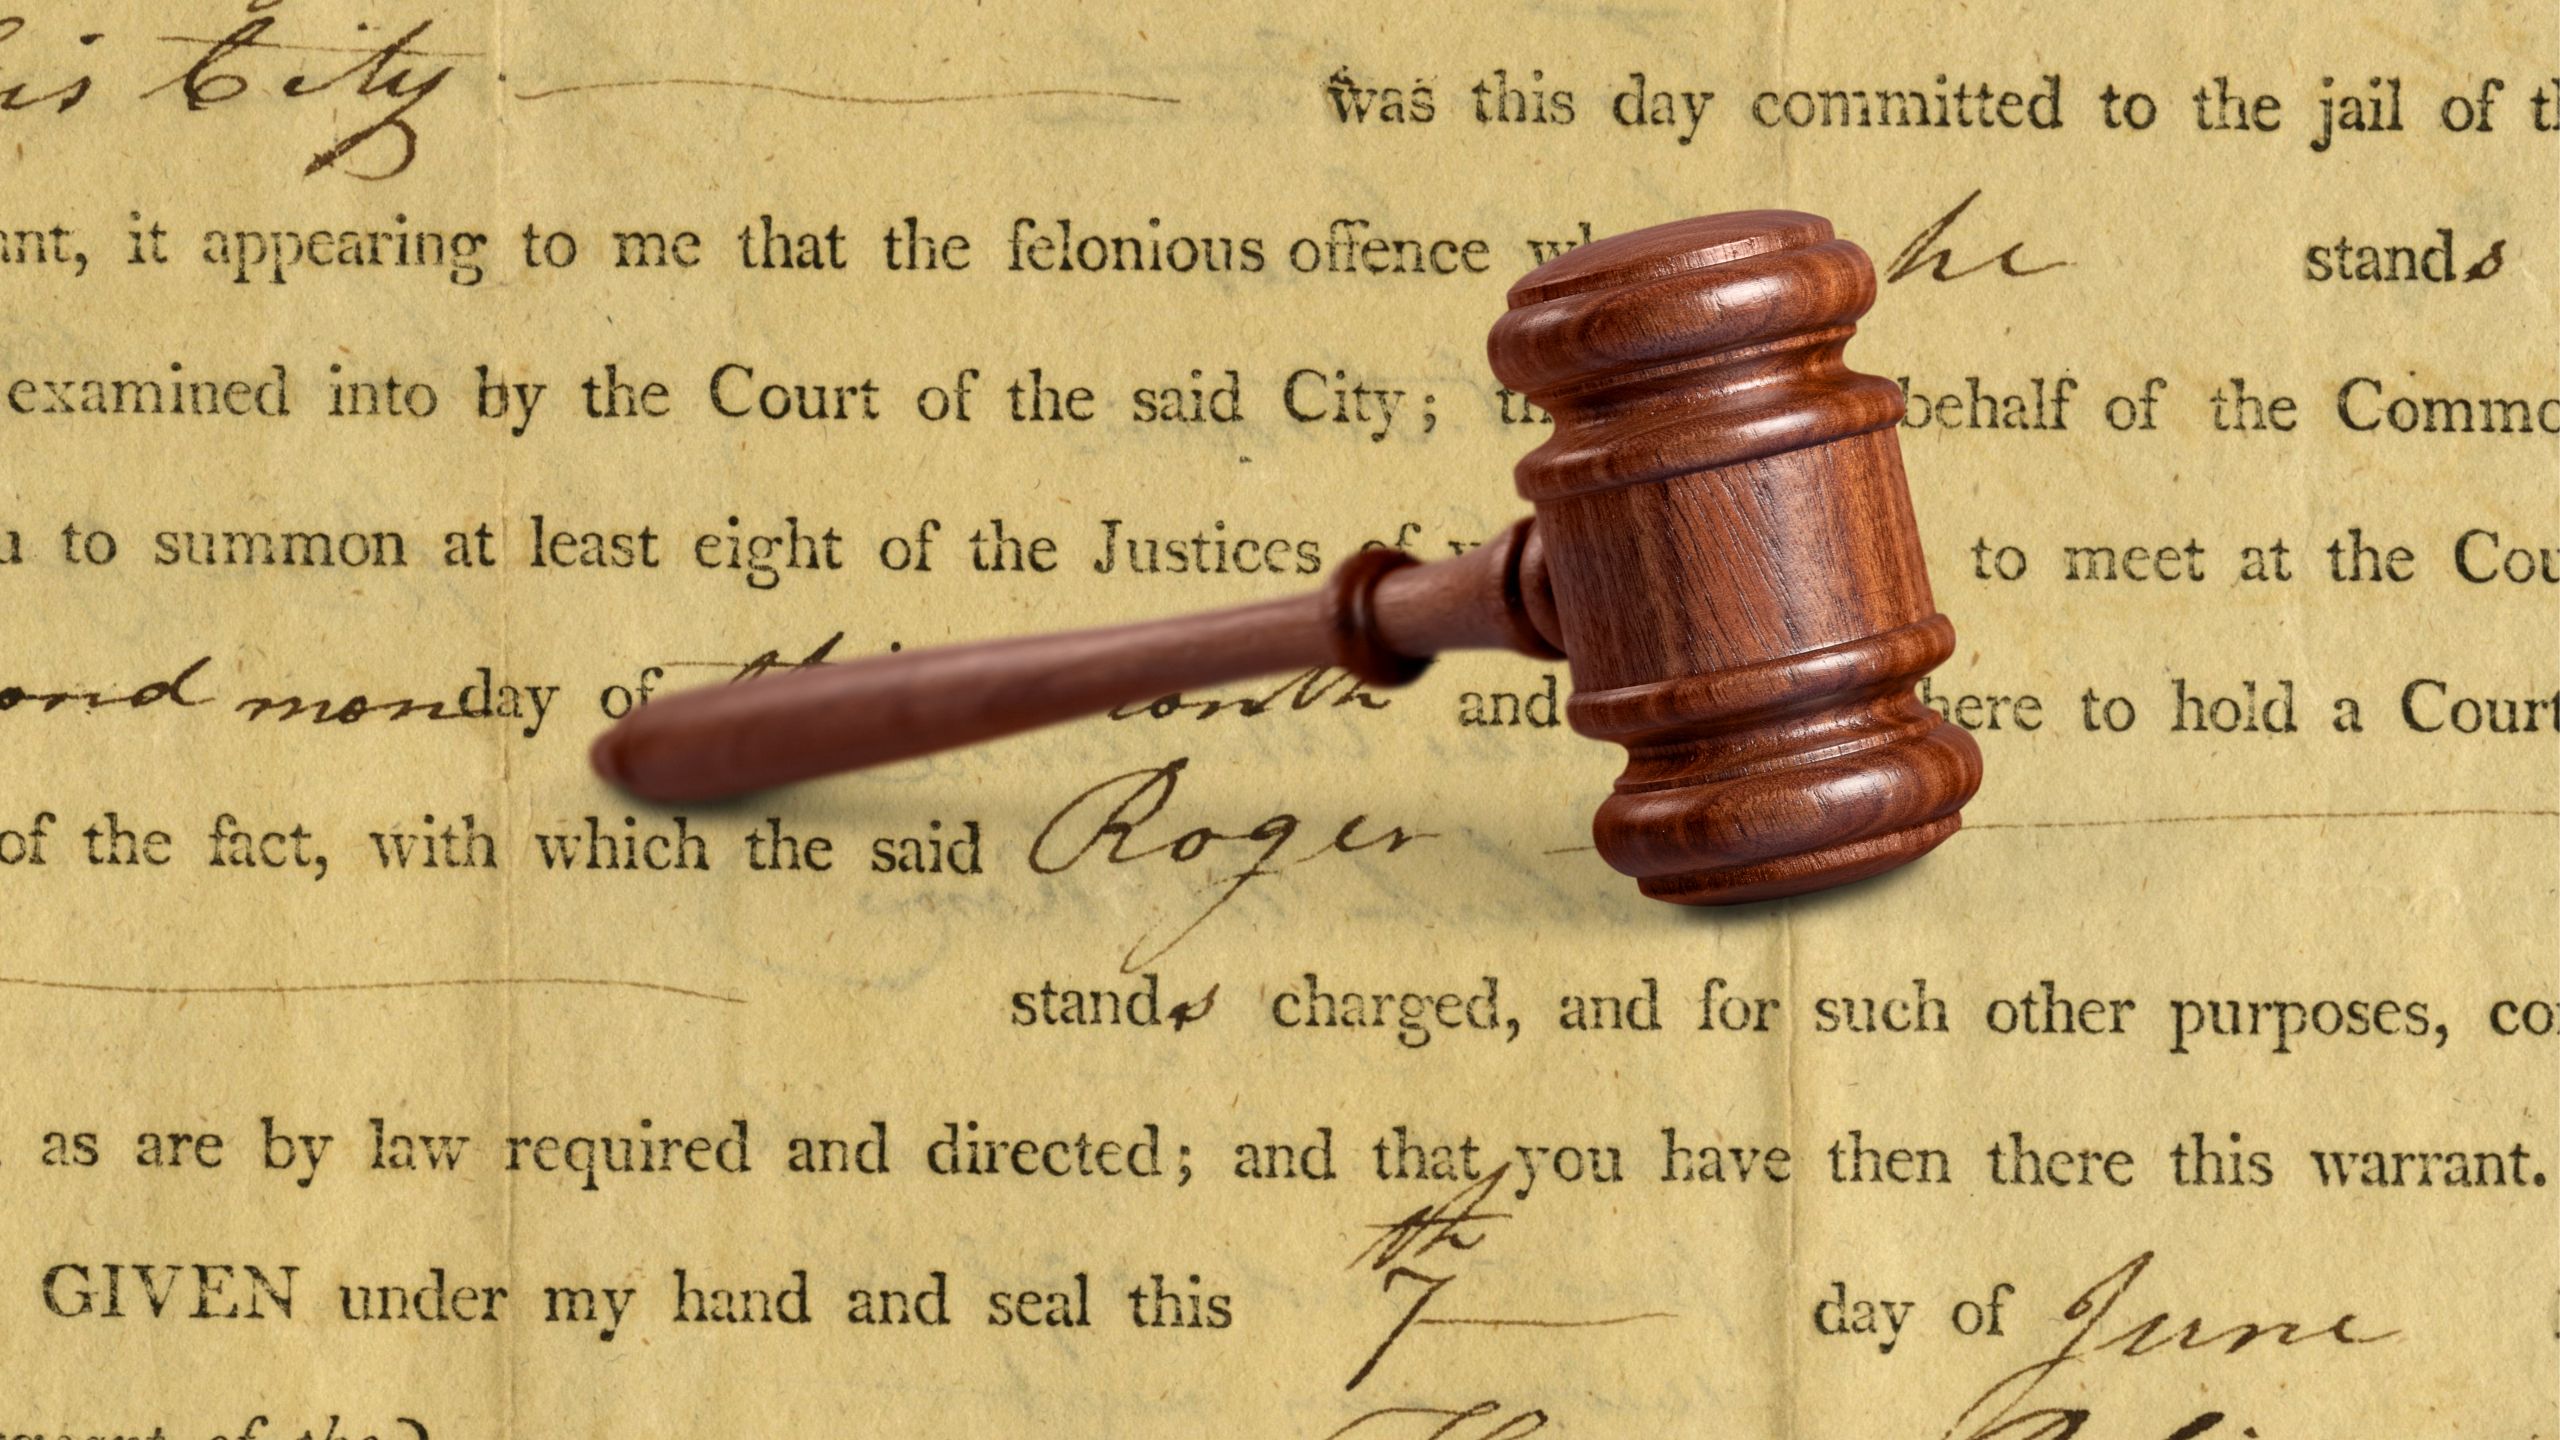 is City. was this day committed to the jail of
it appearing to me that the felonious offence he stands
examined into by the Court of the said City; behalf of the
to summon at least eight of the Justices to meet at the
monday of month and to hold a Court
of the fact, with which the said Roger
stands charged, and for such other purposes,
as are by law required and directed; and that you have then there this warrant.
GIVEN under my hand and seal this 7th day of June
of the